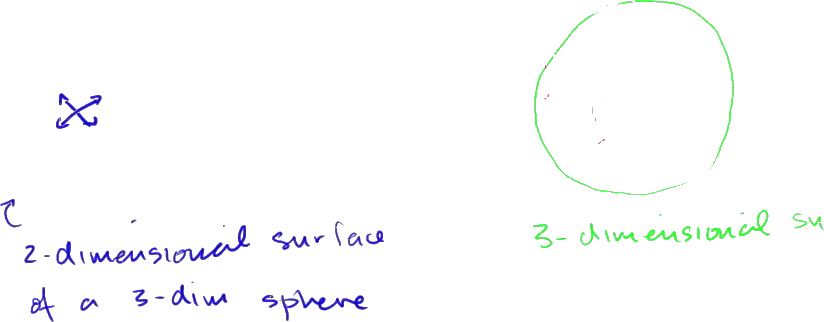 2-dimensional surface
of a 3-dim sphere
3-dimensional su